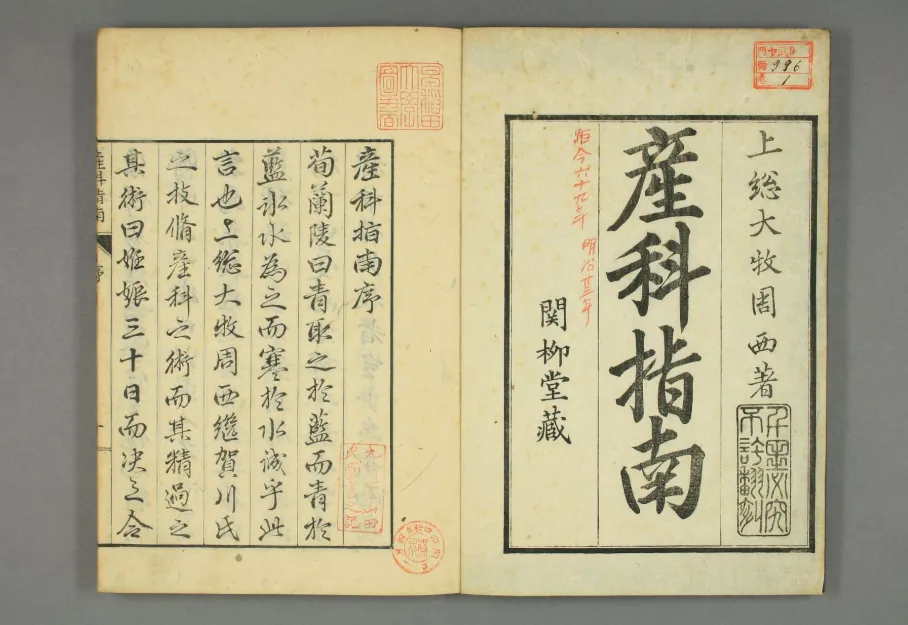 上総大牧周西著
千里必究
不許翻刻
産科指南
距今六十九年 明治廿三年
関柳堂蔵
996
1
産科指南序
荀蘭陵曰青取之於藍而青於
藍氷水為之而寒於水誠乎此
言也上総大牧周西継賀川氏
之技脩産科之術而其精過之
其術曰姙娠三十日而决之合
産科指南
序
一